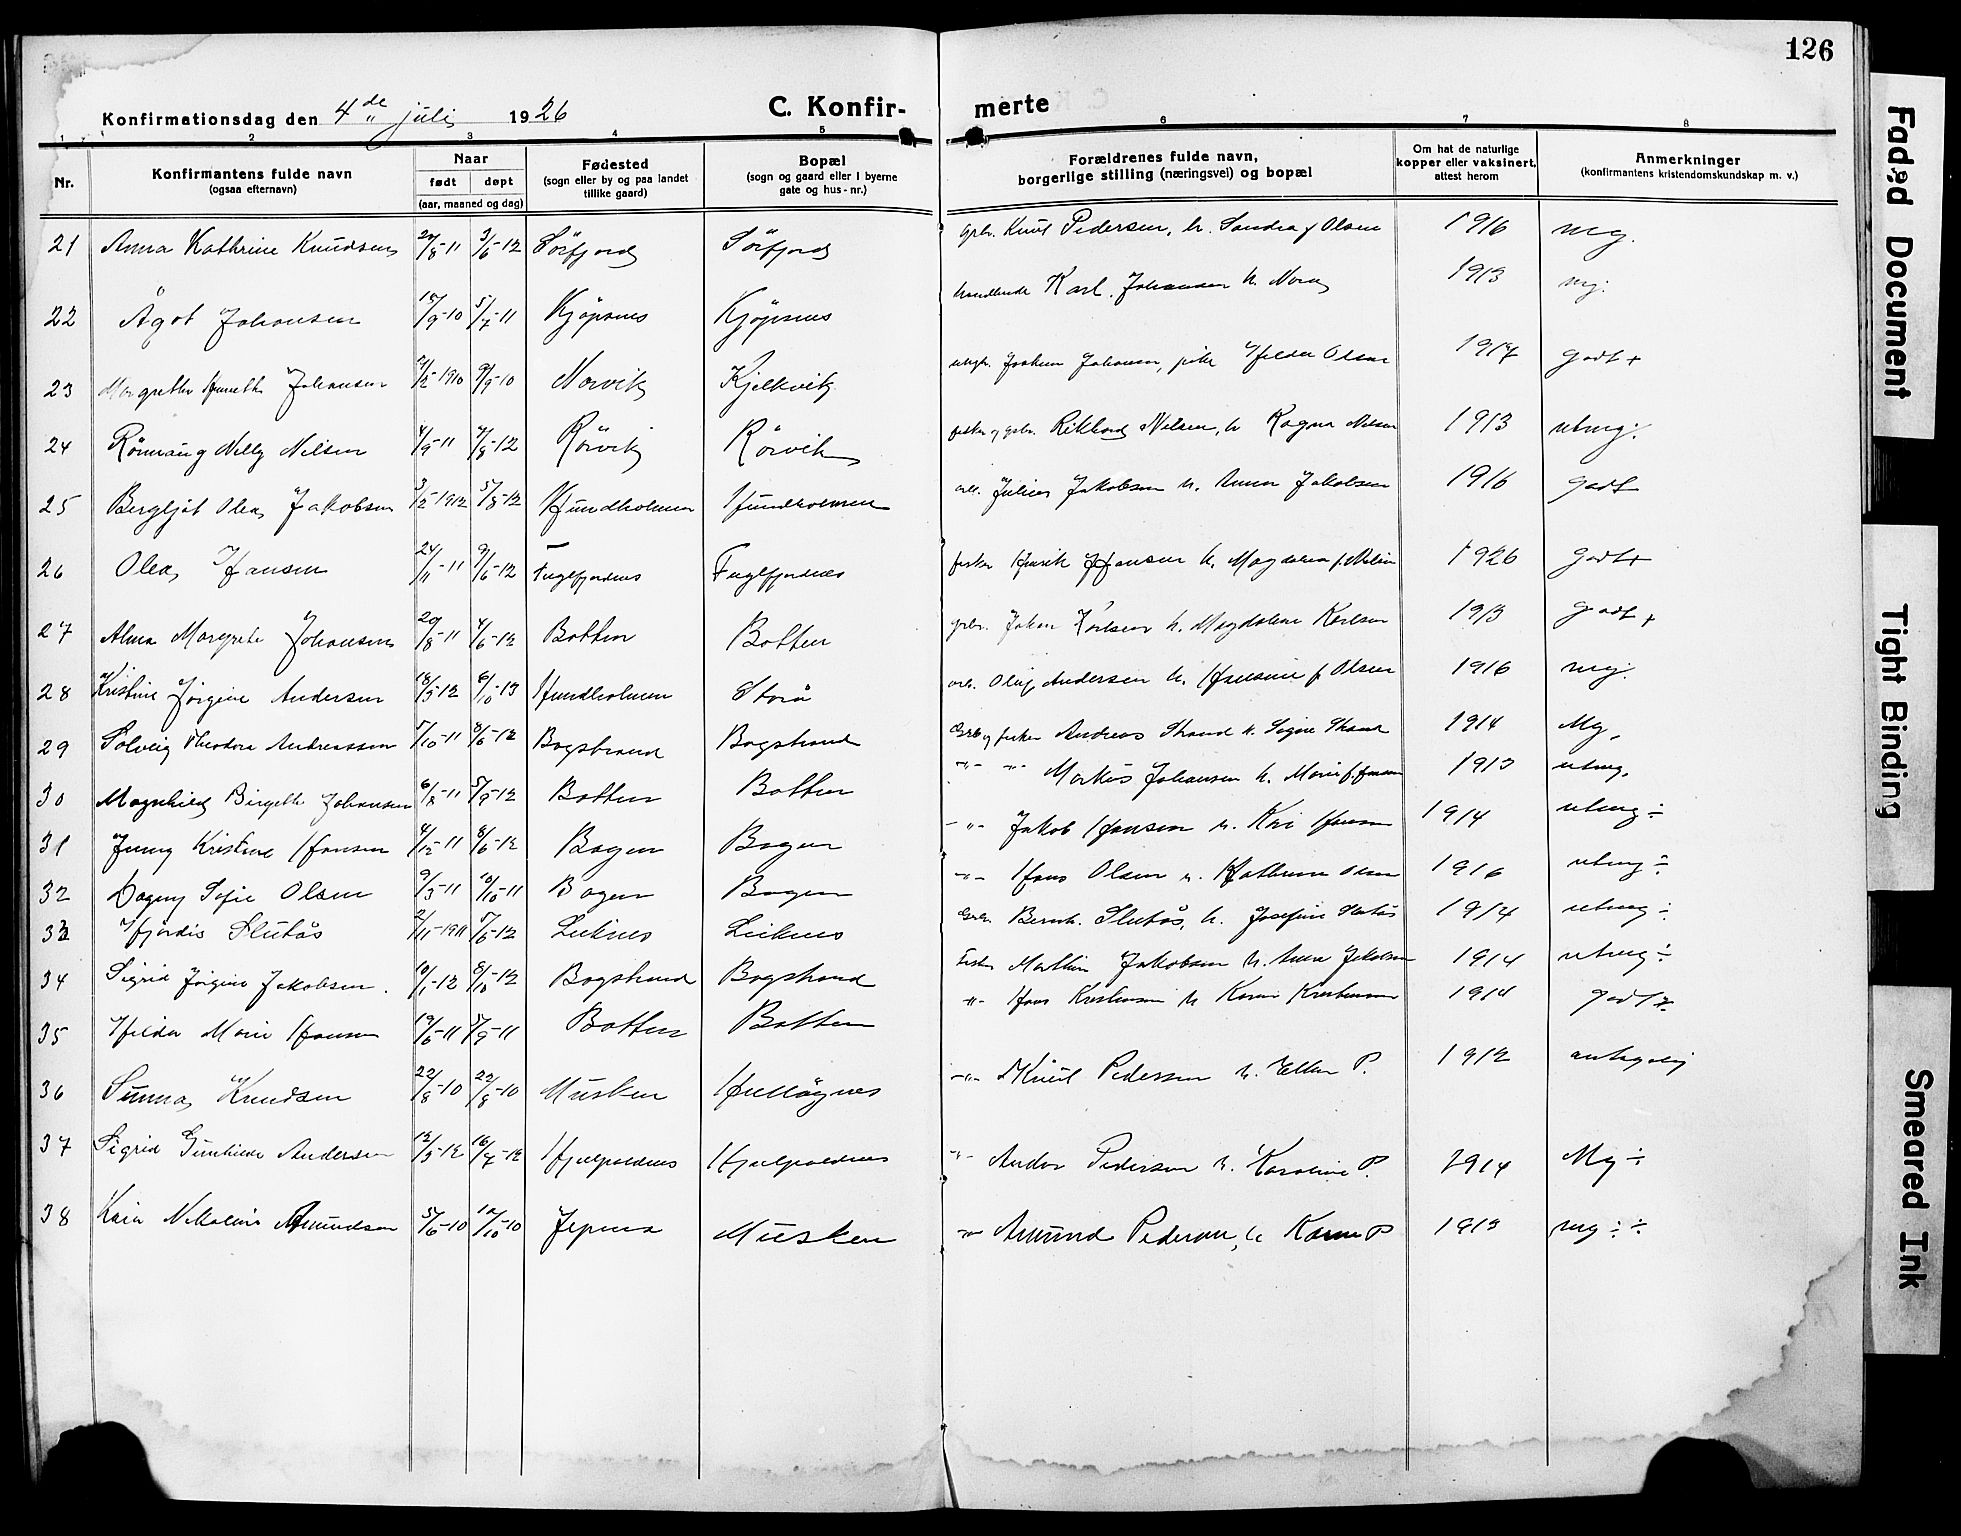 126
Konfirmationsdag den 4de juli 1926 C. Konfirmerte
1 2 3 4 5 6 7 8
Nr. Konfirmantens fulde navn (ogsaa efternavn) Naar født døpt (aar, maaned og dag) Fødested (sogn eller by og paa landet tillike gaard) Bopæl (sogn og gaard eller i byerne gate og hus-nr.) Forældrenes fulde navn, borgerlige stilling (næringsvei) og bopæl Om hat de naturlige kopper eller vaksinert, attest herom Anmerkninger (konfirmantens kristendomskundskap m. v.)
21 Anna Kathrine Knudsen 3/6-12 Sörfjord Sörfjord grbr. Knut Pedersen, h. Sandra f Olsen 1916 mg.
22 Ågot Johansen 5/7-11 Kjöpsnes Kjöpsnes handlende Karl Johansen h. Nora 1913 mg.
23 Johansen 9/9-10 Norvik Kjelkvik Johansen, pike Hilda Olsen 1917 godt +
24 Rönnaug Nelly Nilsen 4/9-11 Rörvik Rörvik fisker og grbr. Rikhard Nilsen, h. Ragna Nilsen 1913 utmg.
25 Bergljot Olea Jakobsen 5/8-12 Hundholmen Hundholmen arb. Julius Jakobsen h. Anna Jakobsen 1916 godt
26 Olea Hansen 24/11-11 9/6-12 Fuglfjordnes Fuglfjordnes fisker Henrik Hansen h. Magdalena f. Nilsen 1926 godt +
27 Alma Margrete Johansen 29/8-11 4/6-12 Botten Botten grbr. Johan Karlsen h. Magdalena Karlsen 1913 godt +
28 Kristine Jörgine Andersen 18/5-12 6/10-13 Hundholmen Storå arb. Oluf Andersen h. Hansine f Olsen 1916 mg.
29 Solveig Theodora Andreassen 5/10-11 8/6-12 Bogstrand Bogstrand Grb og fisker Andreas Strand h. Signe Strand 1914 Mg.
30 Magnhild Birgitte Johansen 6/8-11 5/9-12 Botten Botten -"- -"- Markus Johansen h. Marie f. 1913 utmg.
31 Jenny Kristine Hansen 4/12-11 8/6-12 Bogen Bogen -"- Jakob Hansen h. Kari Hansen 1914 utmg ÷
32 Dagny Sofie Olsen 9/3-11 10/10-11 Bogen Bogen -"- Hans Olsen h. Kathrine Olsen 1916 utmg ÷
33 Hjördis Slutås 2/11-1911 Leiknes Leiknes Grbr. Bernh. Slutås, h. Josefine Slutås 1914 utmg ÷
34 Sigrid Jörgine Jakobsen. 10/1-12 8/10-12 Bogstrand Bogstrand Fisker Marthin Jakobsen h. Anna Jakobsen 1914 utmg ÷
35 Hilda Marie Hansen 19/6-11 5/9-11 Botten Botten -"- Hans Kristensen h Karen Kristensen 1914 godt
36 Sunna Knudsen 22/8-10 22/8-10 Musken Hellågnes -"- Knut Pedersen h. Ellen P. 1912 antagelig
37 Sigrid Gunhilde Andersen 12/3-12 16/7-12 Hjelpoldnes Hjelpoldnes -"- Andor Pedersen h. Karoline P. 1914 Mg ÷
38 Kaia Nikoline Amundsen 5/6-10 12/10-10 Jepma Musken -"- Amund Pedersen, h Karen P 1913 mg ÷ ÷
Faded Document
Tight Binding
Smeared Ink